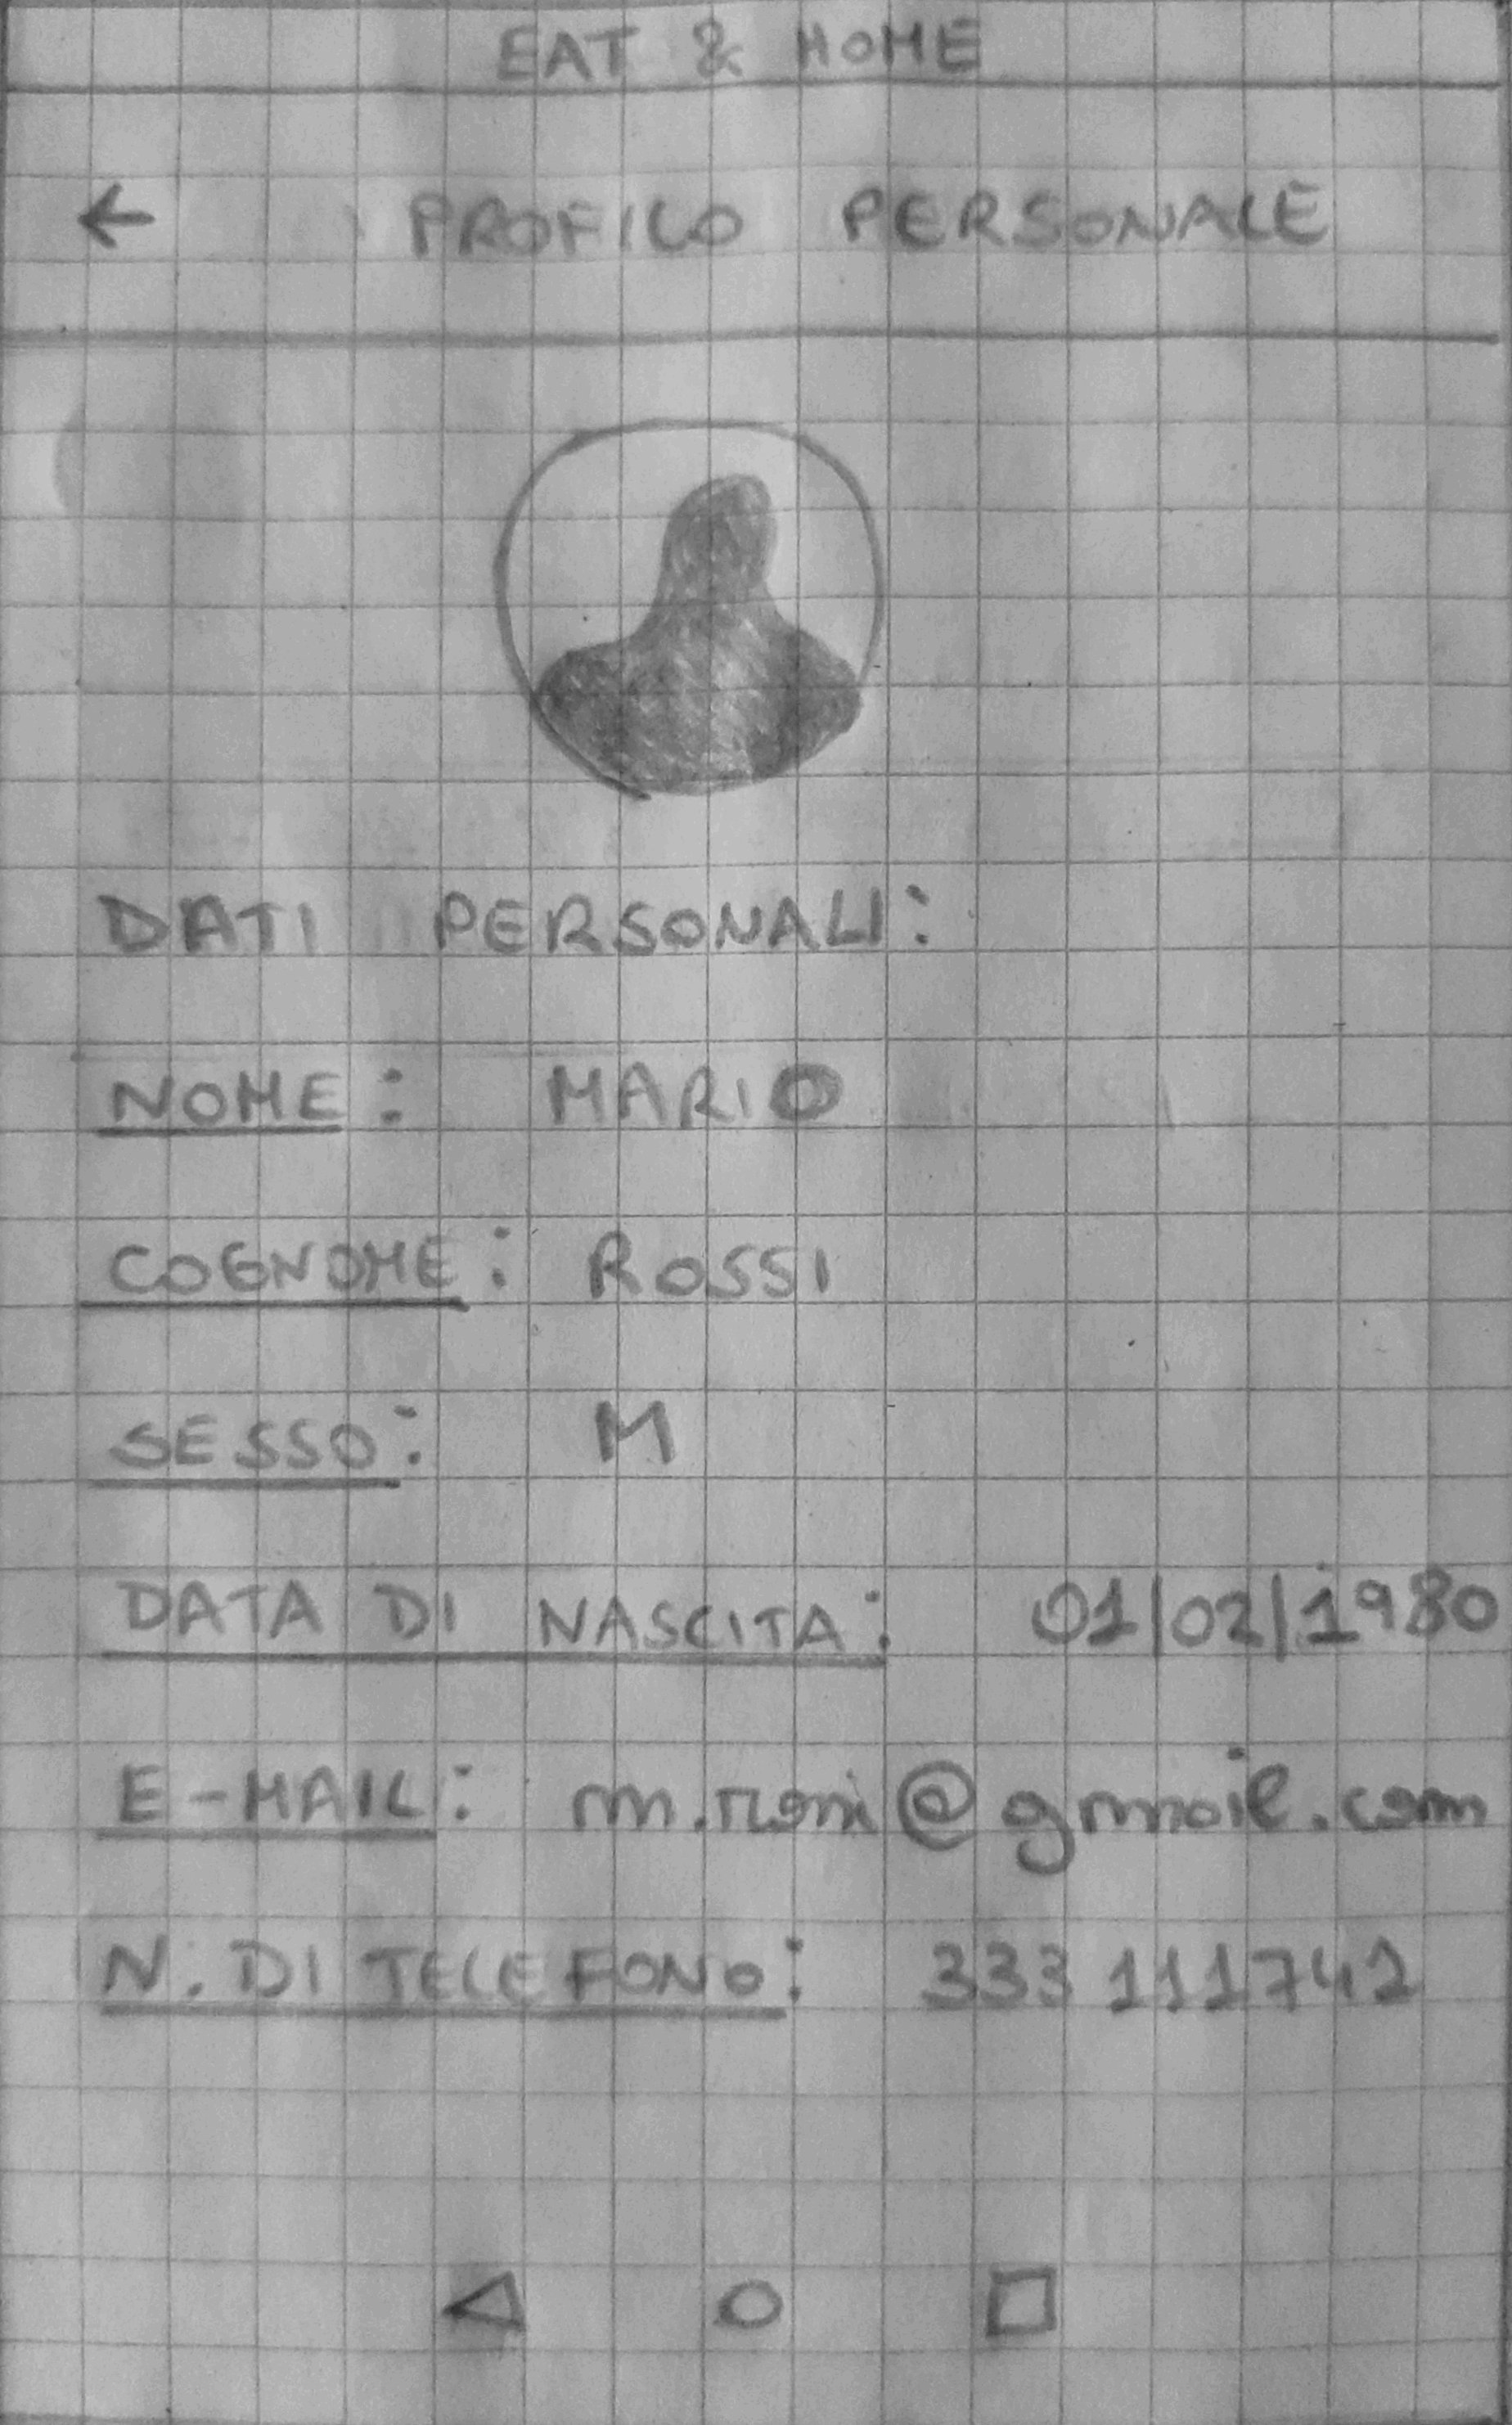 EAT & HOME
← PROFILO PERSONALE
DATI PERSONALI:
NOME: MARIO
COGNOME: ROSSI
SESSO: M
DATA DI NASCITA: 01/02/1980
E-MAIL: m.rossi@gmail.com
N. DI TELEFONO: 333 111742